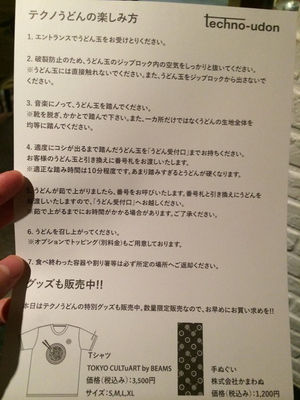 テクノうどんの楽しみ方
techno-udon
1. エントランスでうどん玉をお受けとりください。
2. 破裂防止のため、うどん玉のジップロック内の空気をしっかりと抜いてください。
※うどん玉には直接触れないでください。また、うどん玉をジップロックから出さないで
ください。
3. 音楽にのって、うどん玉を踏んでください。
※靴を脱ぎ、かかとで踏んで下さい。また、一カ所だけではなくうどんの生地全体を
均等に踏んでください。
4. 適度にコシが出るまで踏んだうどん玉を「うどん受付口」までお持ちください。
お客様のうどん玉と引き換えに番号札をお渡しいたします。
※適正な踏み時間は10分程度です。あまり踏みすぎるとうどんが硬くなります。
5. うどんが茹で上がりましたら、番号をお呼びいたします。番号札と引き換えにうどんを
お渡しいたしますので、「うどん受付口」へお越しください。
茹で上がるまでにお時間がかかる場合があります。ご了承ください。
6. うどんを召し上がってください。
※オプションでトッピング(別料金)もご用意しております。
7. 食べ終わった容器や割り箸等は必ず所定の場所へご返却ください。
グッズも販売中!!
本日はテクノうどんの特別グッズも販売中。数量限定販売なので、お早めにお買い求めを!!
Tシャツ
TOKYO CULTuART by BEAMS
価格(税込み):3,500円
サイズ:S,M,L,XL
手ぬぐい
株式会社かまわぬ
価格(税込み):1,200円